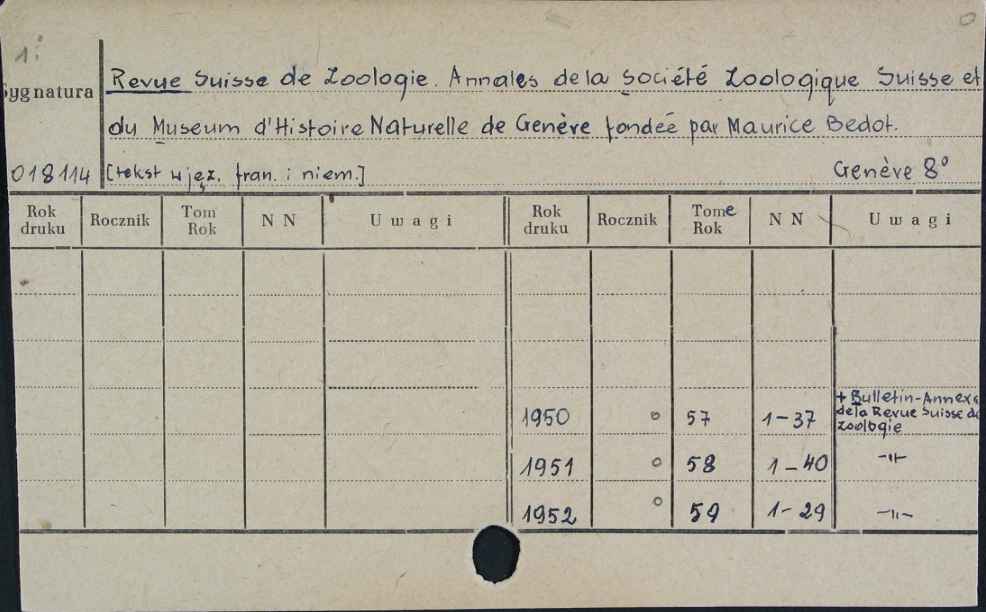 1:
0
Sygnatura
Revue Suisse de Zoologie. Annales de la Société Zoologique Suisse et
du Museum d'Histoire Naturelle de Genève fondée par Maurice Bedot.
018114 [tekst w jęz. fran. i niem.] Genève 8°
Rok druku Rocznik Tom Rok N N Uwagi Rok druku Rocznik Tome Rok N N Uwagi
1950 o 57 1-37 + Bulletin-Annexe
de la Revue Suisse de
Zoologie
1951 o 58 1-40 -"-
1952 o 59 1-29 -"-